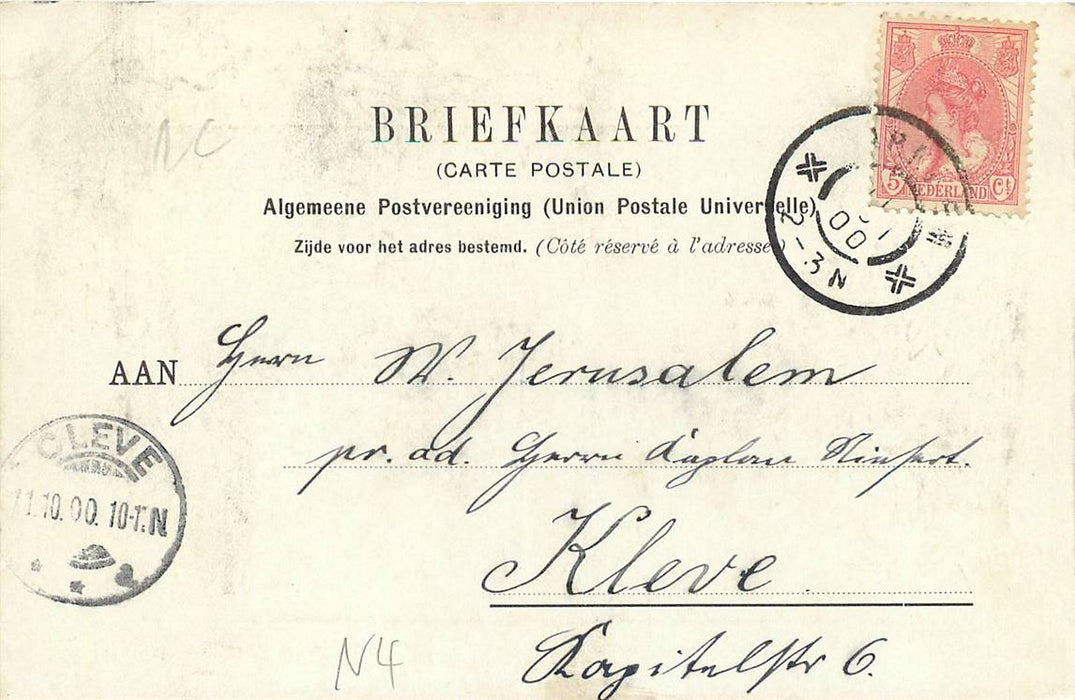 BRIEFKAART
(CARTE POSTALE)
Algemeene Postvereeniging (Union Postale Universelle)
Zijde voor het adres bestemd. (Côté réservé à l'adresse.)
5 NEDERLAND Ct
00
2-3N
AAN Herrn W. Jerusalem
pr. ad. Herrn Kaplan
Kleve
Kapitelstr 6.
CLEVE
11.10.00. 10-11.N
N4